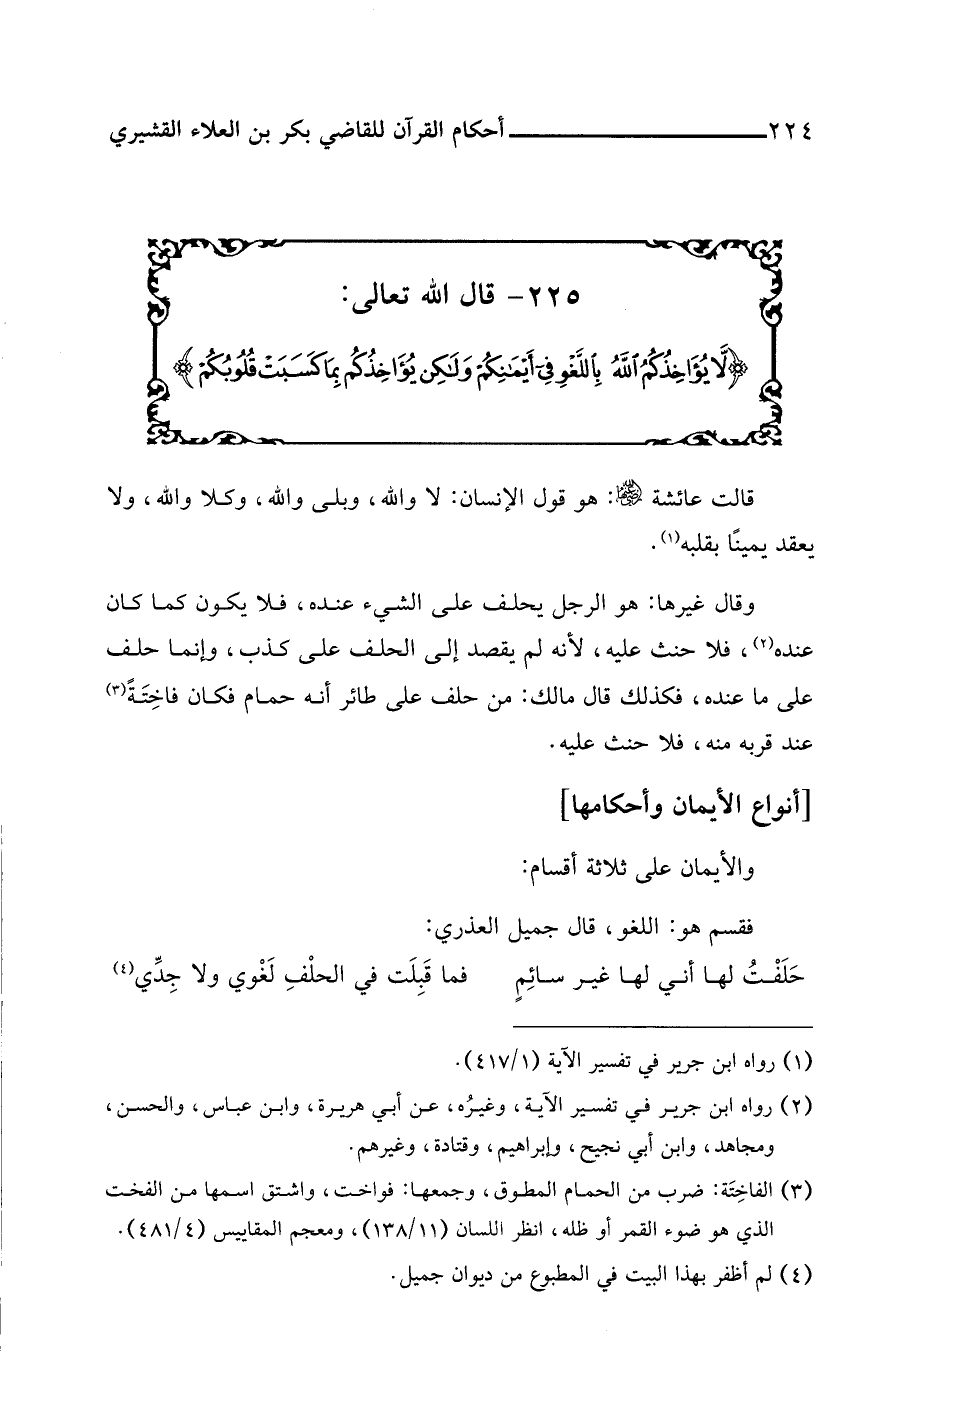 ٢٢٤ ــــــــــــــــــــــــ أحكام القرآن للقاضي بكر بن العلاء القشيري
٢٢٥- قال الله تعالى:
﴿لَّا يُؤَاخِذُكُمُ ٱللَّهُ بِٱللَّغْوِ فِىٓ أَيْمَـٰنِكُمْ وَلَـٰكِن يُؤَاخِذُكُم بِمَا كَسَبَتْ قُلُوبُكُمْ﴾
قالت عائشة رضي الله عنها: هو قول الإنسان: لا والله، وبلى والله، وكلا والله، ولا
يعقد يمينًا بقلبه(١).
وقال غيرها: هو الرجل يحلف على الشيء عنده، فلا يكون كما كان
عنده(٢)، فلا حنث عليه، لأنه لم يقصد إلى الحلف على كذب، وإنما حلف
على ما عنده، فكذلك قال مالك: من حلف على طائر أنه حمام فكان فاخِتَةً(٣)
عند قربه منه، فلا حنث عليه.
[أنواع الأيمان وأحكامها]
والأيمان على ثلاثة أقسام:
فقسم هو: اللغو، قال جميل العذري:
حَلَفْتُ لها أني لها غير سائِمٍ فما قَبِلَت في الحلْفِ لَغْوي ولا جِدِّي(٤)
(١) رواه ابن جرير في تفسير الآية (٤١٧/١).
(٢) رواه ابن جرير في تفسير الآية، وغيرُه، عن أبي هريرة، وابن عباس، والحسن،
ومجاهد، وابن أبي نجيح، وإبراهيم، وقتادة، وغيرهم.
(٣) الفاخِتَة: ضرب من الحمام المطوق، وجمعها: فواخت، واشتق اسمها من الفخت
الذي هو ضوء القمر أو ظله، انظر اللسان (١٣٨/١١)، ومعجم المقاييس (٤٨١/٤).
(٤) لم أظفر بهذا البيت في المطبوع من ديوان جميل.